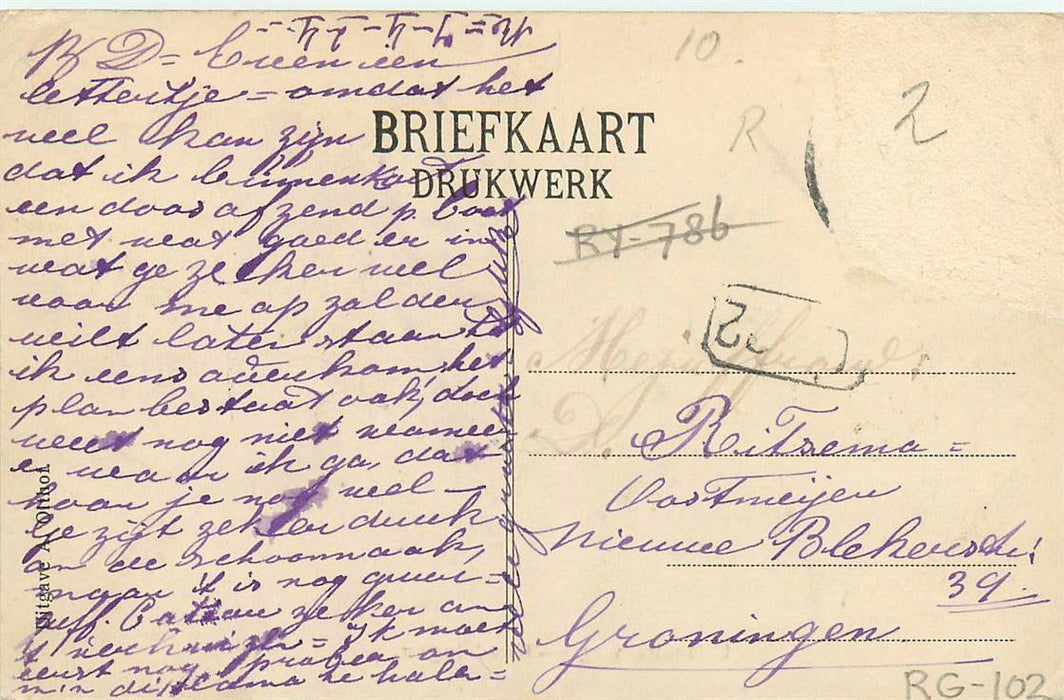 B D = Even een
lettertje = omdat het
wel kan zijn
dat ik binnenkort
een doos afzend p. boot
met wat goed er in
wat ge zeker wel
voor me op zolder
wilt laten staan tot
ik eens overkom, het
plan bestaat ook, doch
weet nog niet wanneer
waar ik ga, dat
hoor je nog wel -
Ge zijt zeker druk
an de schoonmaak,
maar 't is nog guur =
juff. zeker an
't verhuizen = ik moet
eerst nog probeeren
m'n diploma te halen =
BRIEFKAART
DRUKWERK
Uitgave A. Olthof
10.
R
2
RY-786
Mejuffrouw
D.
Ritsema =
Oostmeijer
Nieuwe Blekerstr.
39.
Groningen
RG-102